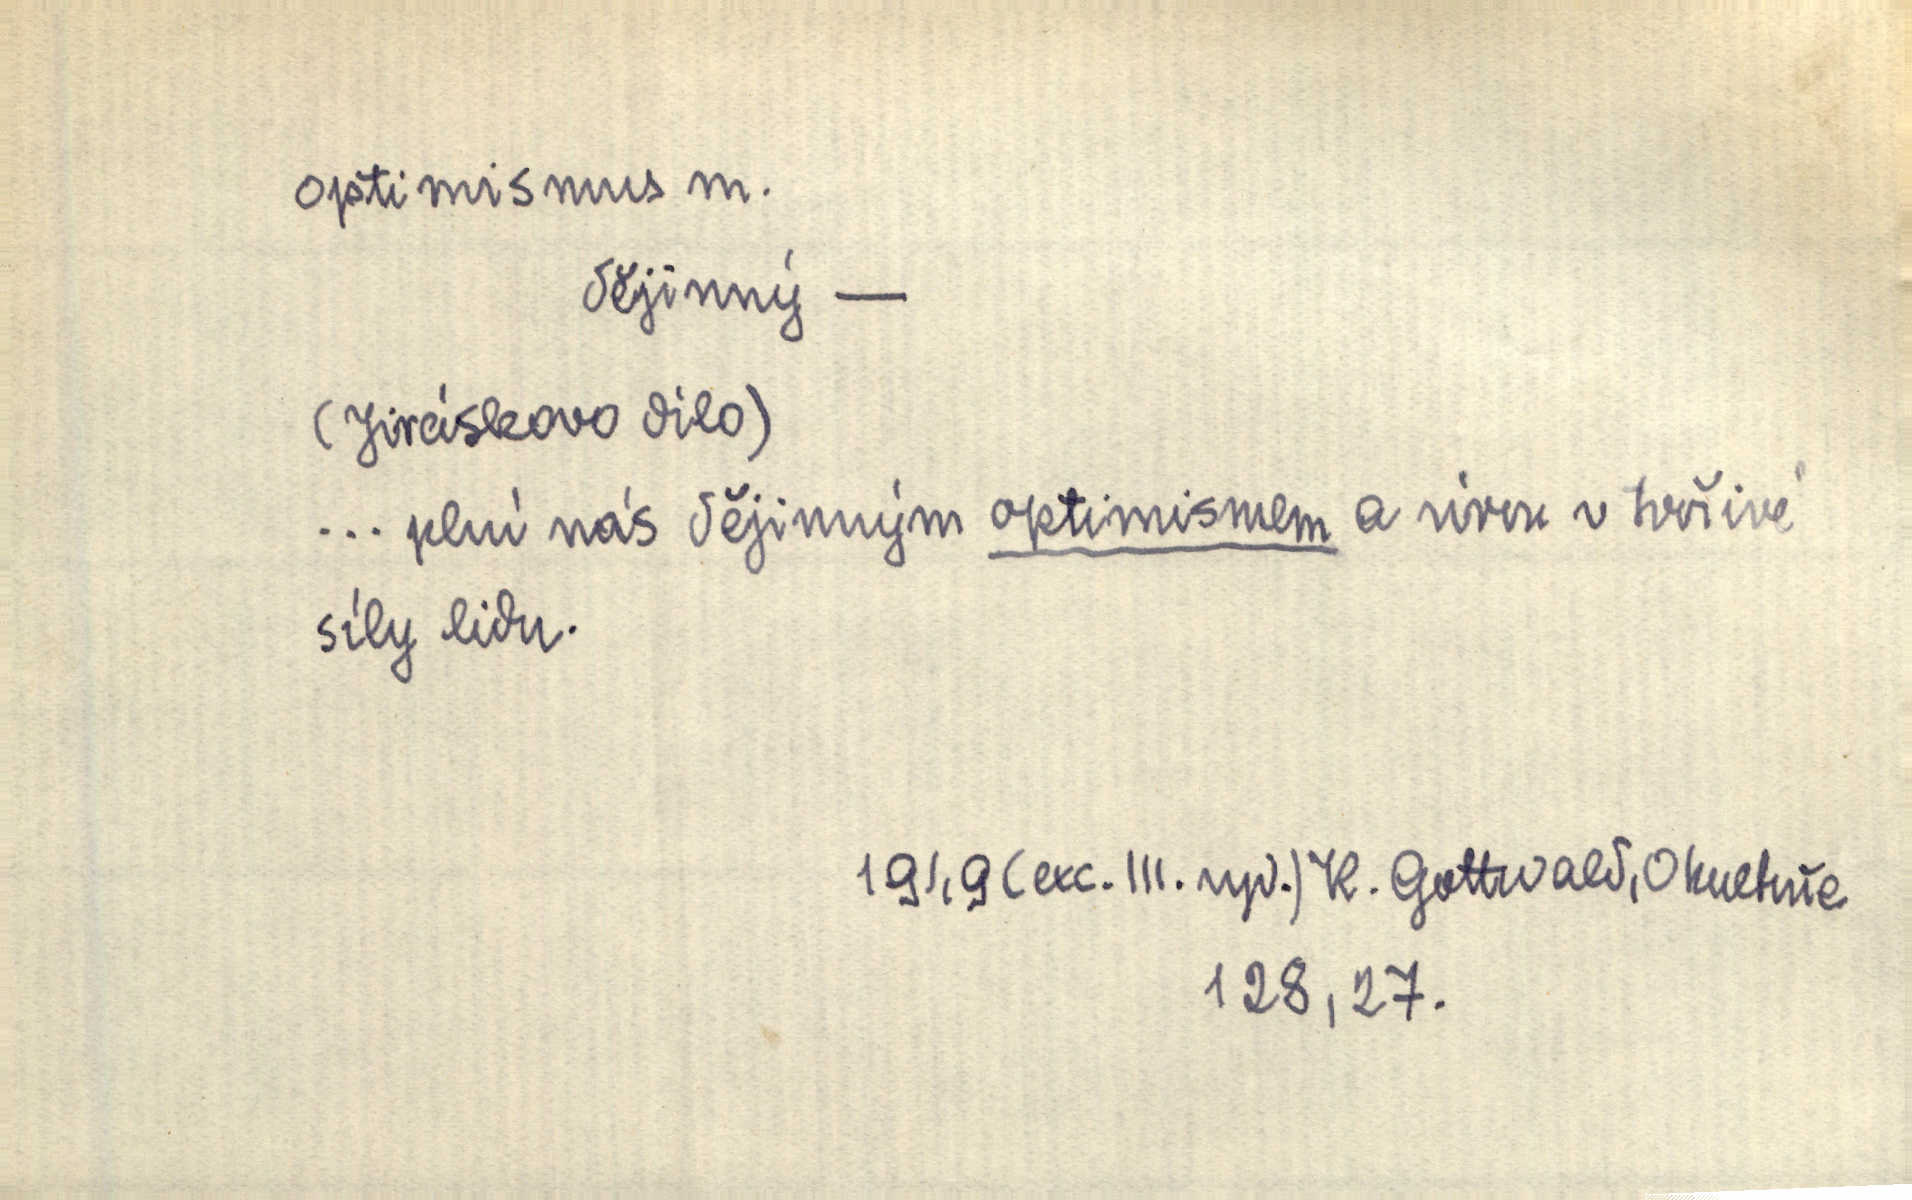 optimismus m.
dějinný —
(Jiráskovo dílo)
... plní nás dějinným optimismem a vírou v tvořivé
síly lidu.
1949 (exc. III. vyd.) K. Gottwald, O kultuře
128, 27.